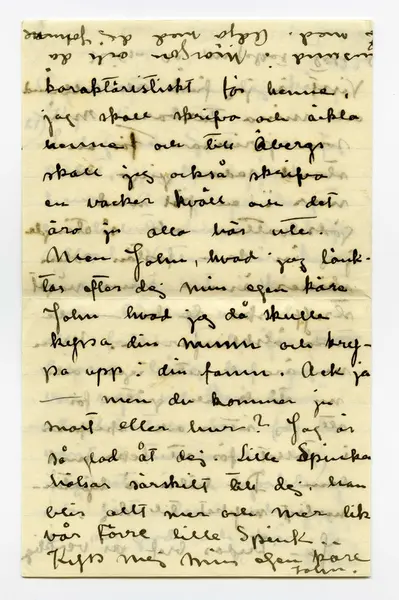 karaktäristiskt för henne,
jag skall skrifva och äckla
henne! och till Åbergs
skall jag också skrifva
en vacker kväll och det
äro ju alla här ute.
Men John, hvad jag länk-
tar efter dej min egen käre
John hvad jag då skulle
kyssa din munn och kry-
pa upp i din famn. Ack ja
— men du kommer ju
snart eller hur? Jag är
så glad åt dej. Lille Spinka
hälsar särskilt till dej. Han
blir allt mer och mer lik
vår förre lille Spink...
Kyss mej min egen käre
John.
med. Adjö med dej
och då